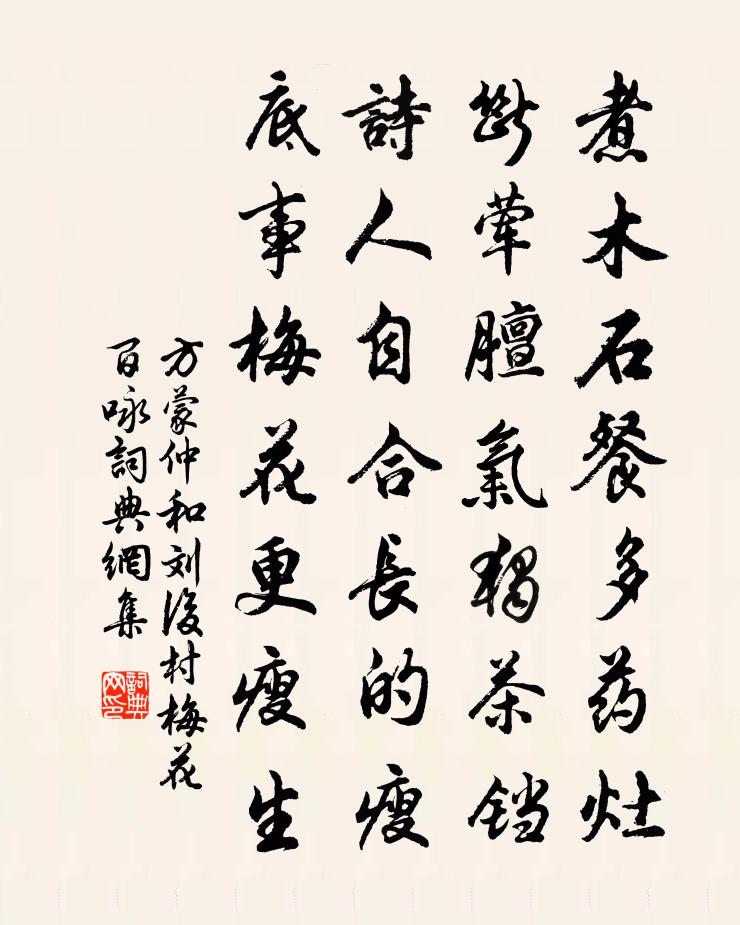 煮木石餐多药灶
斷荤膻氣獨茶铛
詩人自合長的瘦
底事梅花更瘦生
方蒙仲和刘後村梅花
百咏詞典網集
詞典网